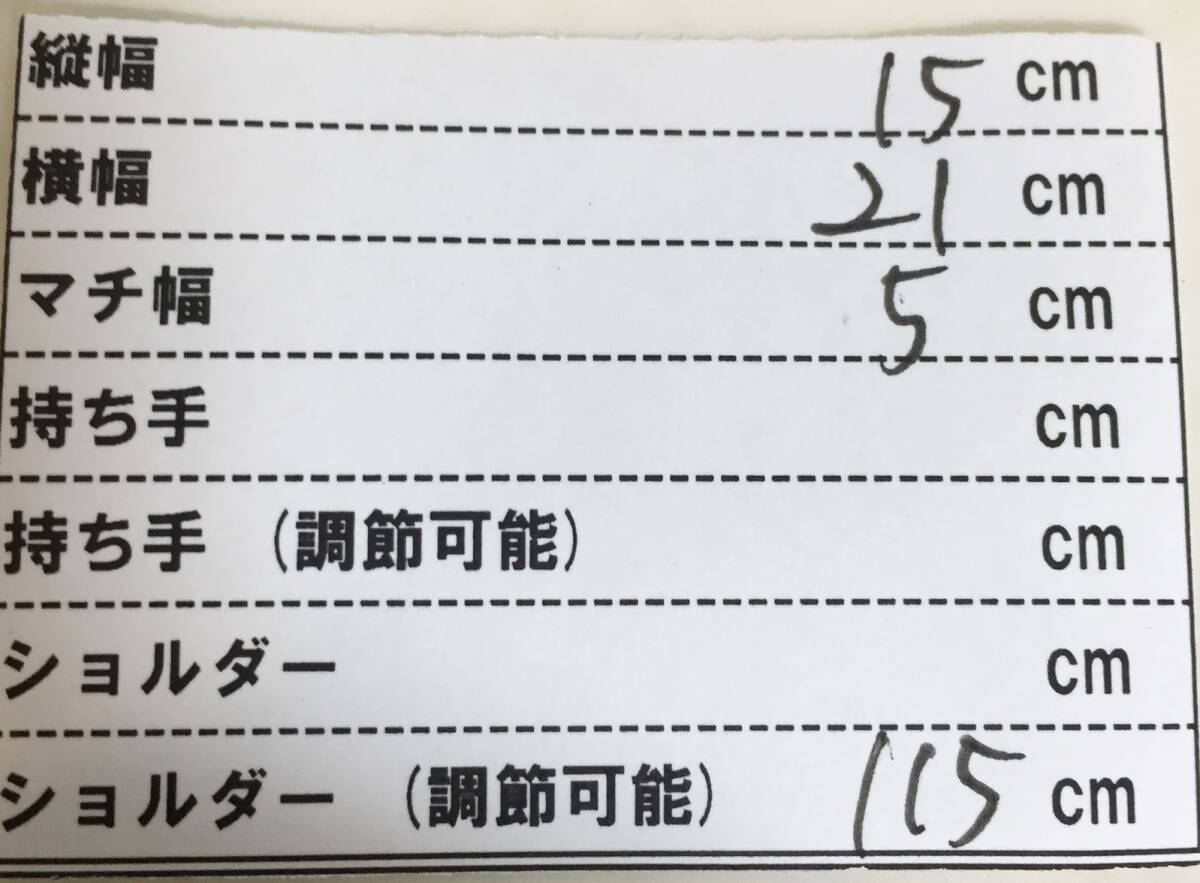 縦幅 15 cm
横幅 21 cm
マチ幅 5 cm
持ち手 cm
持ち手 (調節可能) cm
ショルダー cm
ショルダー (調節可能) 115 cm